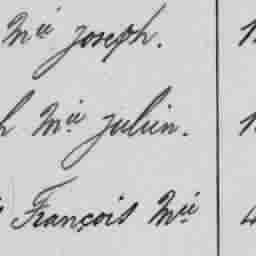 Mie joseph. 1
h Mie julien. 1
François Mie 4